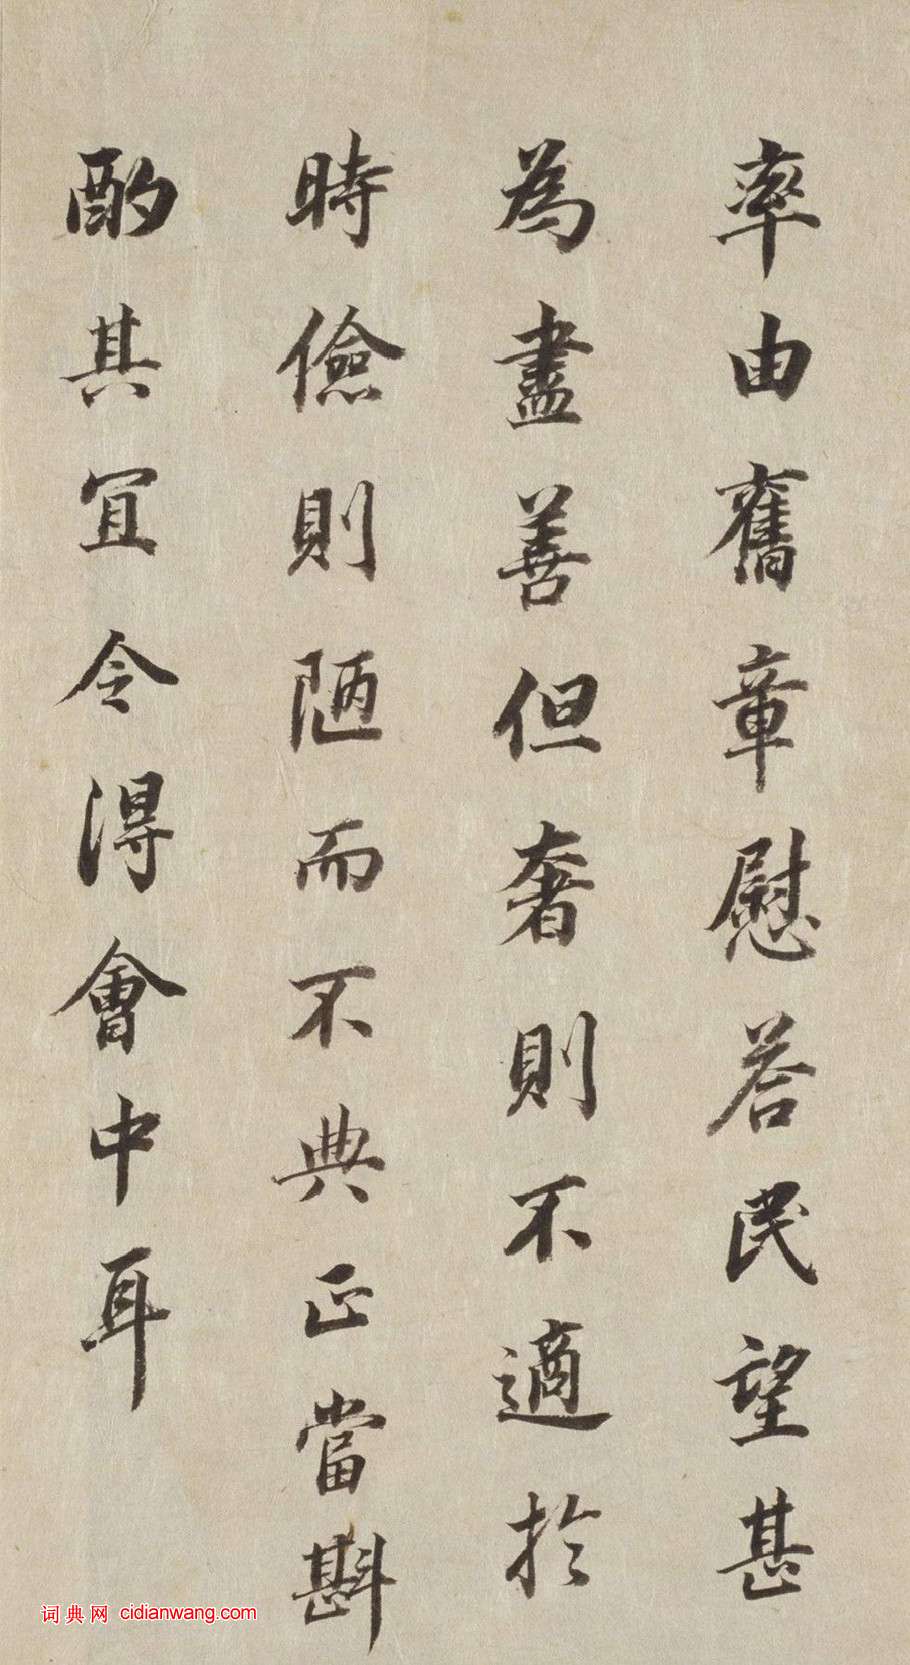 率由舊章慰荅民望甚
為盡善但奢則不適於
時儉則陋而不典正當斟
酌其宜令得會中耳
词典网 cidianwang.com